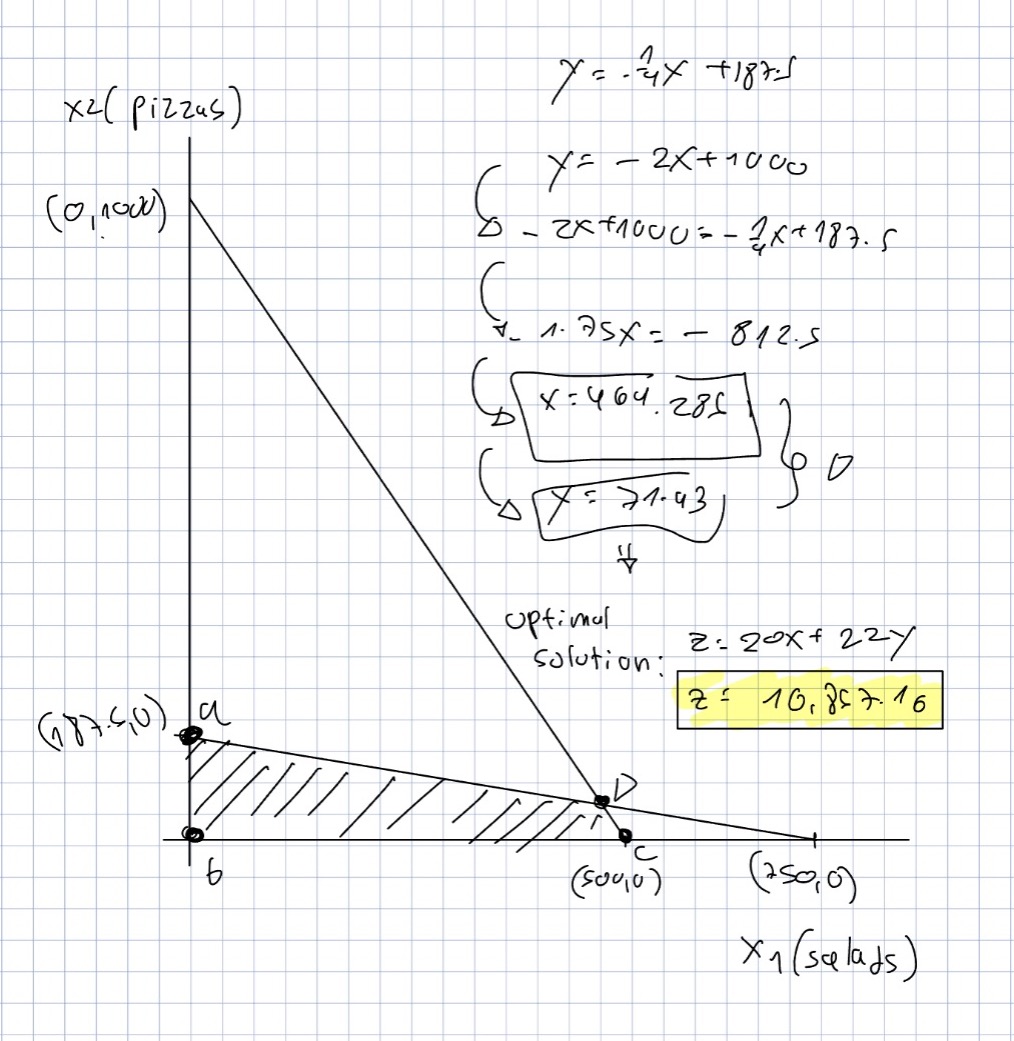 y = -1/4x + 187.5
x2 (pizzas)
y = - 2x + 1000
(0,1000)
- 2x + 1000 = - 1/4x + 187.5
- 1.75x = - 812.5
x = 464.285
D
y = 71.43
optimal
solution:
z = 20x + 22y
z = 10,857.16
(187.5,0)
a
D
b
C
(500,0)
(750,0)
x1 (salads)